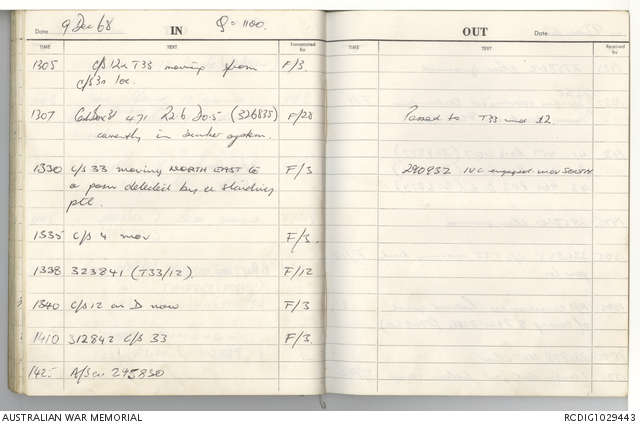 Date 9 Dec 68 IN Q = 1100
TIME TEXT Transmitted by
1305 C/S 12a T33 moving from F/3.
c/s 30 loc.
1307 471 22.6 20.5 (326835) F/28
currently in bunker system.
1330 C/S 33 moving NORTH EAST to F/3
a posn detected by a standing
ptl.
1335 C/S 4 mov F/3.
1338 323841 (T33/12). F/12
1340 C/S 12 on D now F/3
1410 312842 C/S 33 F/3.
1425 295830
OUT Date
TIME TEXT Received by
Passed to T33 and 12.
290832 engaged mov SOUTH
AUSTRALIAN WAR MEMORIAL
RCDIG1029443